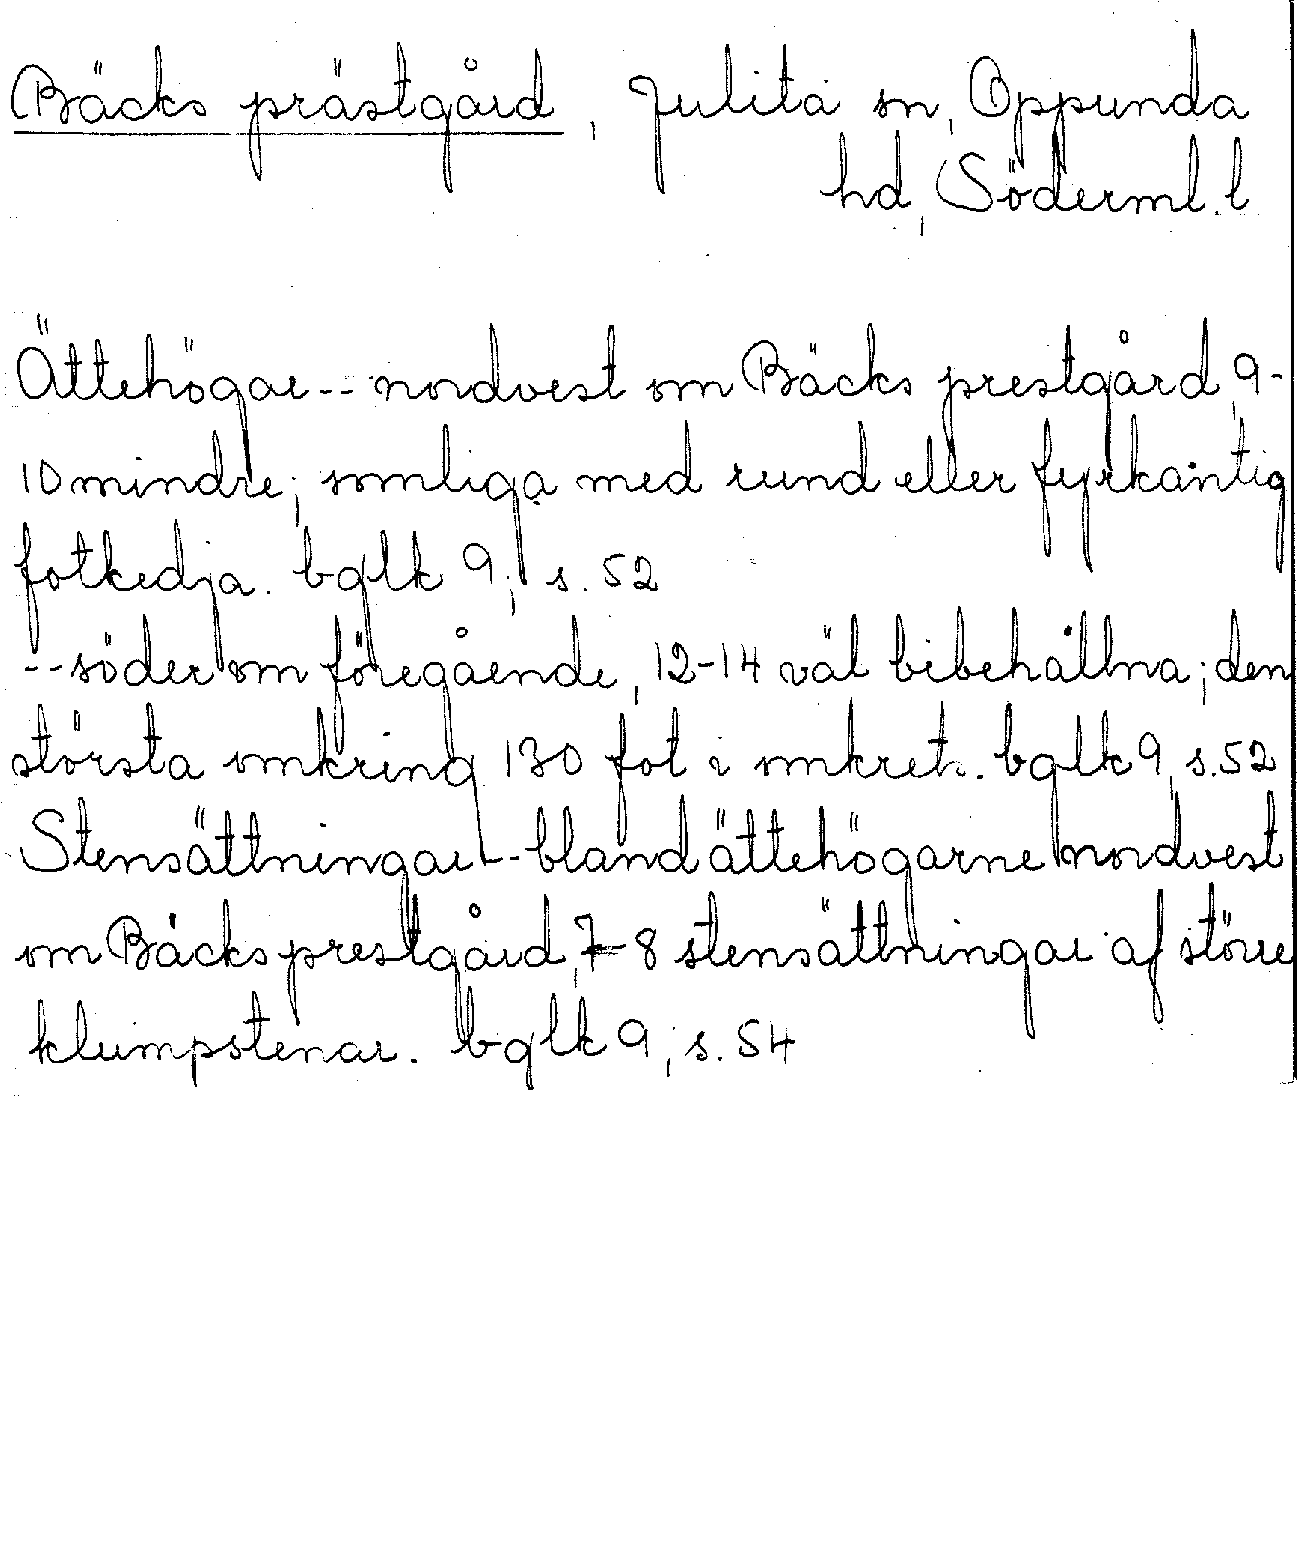 Bäcks prästgård, Julita sn, Oppunda
hd, Söderml. l
Ättehögar-- nordvest om Bäcks prestgård, 9-
10 mindre; somliga med rund eller fyrkantig
fotkedja. bglk 9, s. 52
--söder om föregående, 12-14 väl bibehållna; den
största omkring 130 fot i omkrets. bglk 9, s. 52
Stensättningar-- bland ättehögarne nordvest
om Bäcks prestgård, 7-8 stensättningar af större
klumpstenar. bglk 9, s. 54